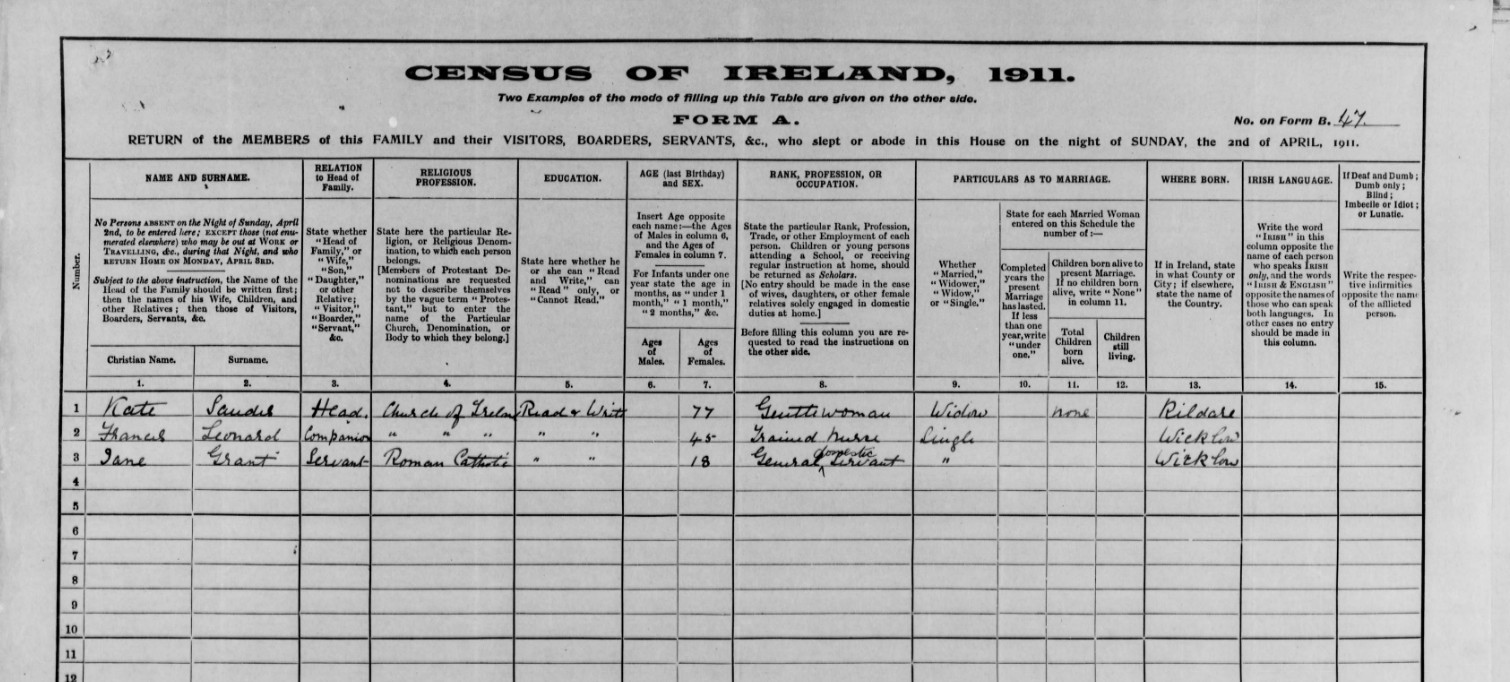 CENSUS OF IRELAND, 1911.
Two Examples of the mode of filling up this Table are given on the other side.
FORM A.
No. on Form B. 47.
RETURN of the MEMBERS of this FAMILY and their VISITORS, BOARDERS, SERVANTS, &c., who slept or abode in this House on the night of SUNDAY, the 2nd of APRIL, 1911.
Number.
NAME AND SURNAME.
No Persons ABSENT on the Night of Sunday, April
2nd, to be entered here; EXCEPT those (not enu-
merated elsewhere) who may be out at WORK or
TRAVELLING, &c., during that Night, and who
RETURN HOME ON MONDAY, APRIL 3RD.
Subject to the above instruction, the Name of the
Head of the Family should be written first;
then the names of his Wife, Children, and
other Relatives; then those of Visitors,
Boarders, Servants, &c.
Christian Name.
Surname.
RELATION
to Head of
Family.
State whether
"Head of
Family," or
"Wife,"
"Son,"
"Daughter,"
or other
Relative;
"Visitor,"
"Boarder,"
"Servant,"
&c.
RELIGIOUS
PROFESSION.
State here the particular Re-
ligion, or Religious Denom-
ination, to which each person
belongs.
[Members of Protestant De-
nominations are requested
not to describe themselves
by the vague term "Protes-
tant," but to enter the
name of the Particular
Church, Denomination, or
Body to which they belong.]
EDUCATION.
State here whether he
or she can "Read
and Write," can
"Read" only, or
"Cannot Read."
AGE (last Birthday)
and SEX.
Insert Age opposite
each name:—the Ages
of Males in column 6,
and the Ages of
Females in column 7.
For Infants under one
year state the age in
months, as "under 1
month," "1 month,"
"2 months," &c.
Ages
of
Males.
Ages
of
Females.
RANK, PROFESSION, OR
OCCUPATION.
State the particular Rank, Profession,
Trade, or other Employment of each
person. Children or young persons
attending a School, or receiving
regular instruction at home, should
be returned as Scholars.
[No entry should be made in the case
of wives, daughters, or other female
relatives solely engaged in domestic
duties at home.]
Before filling this column you are re-
quested to read the instructions on
the other side.
PARTICULARS AS TO MARRIAGE.
Whether
"Married,"
"Widower,"
"Widow,"
or "Single."
State for each Married Woman
entered on this Schedule the
number of:—
Completed
years the
present
Marriage
has lasted.
If less
than one
year, write
"under
one."
Children born alive to
present Marriage.
If no children born
alive, write "None"
in column 11.
Total
Children
born
alive.
Children
still
living.
WHERE BORN.
If in Ireland, state
in what County or
City; if elsewhere,
state the name of
the Country.
IRISH LANGUAGE.
Write the word
"IRISH" in this
column opposite the
name of each person
who speaks IRISH
only, and the words
"IRISH & ENGLISH"
opposite the names of
those who can speak
both languages. In
other cases no entry
should be made in
this column.
If Deaf and Dumb;
Dumb only;
Blind;
Imbecile or Idiot;
or Lunatic.
Write the respec-
tive infirmities
opposite the name
of the afflicted
person.
1. 2. 3. 4. 5. 6. 7. 8. 9. 10. 11. 12. 13. 14. 15.
1 Kate Head. Church of Ireland Read & Write 77 Gentlewoman Widow none Kildare
2 Frances Leonard Companion " " " " " 45 Trained Nurse Single Wicklow
3 Jane Grant Servant Roman Catholic " " 18 General domestic Servant " Wicklow
4
5
6
7
8
9
10
11
12